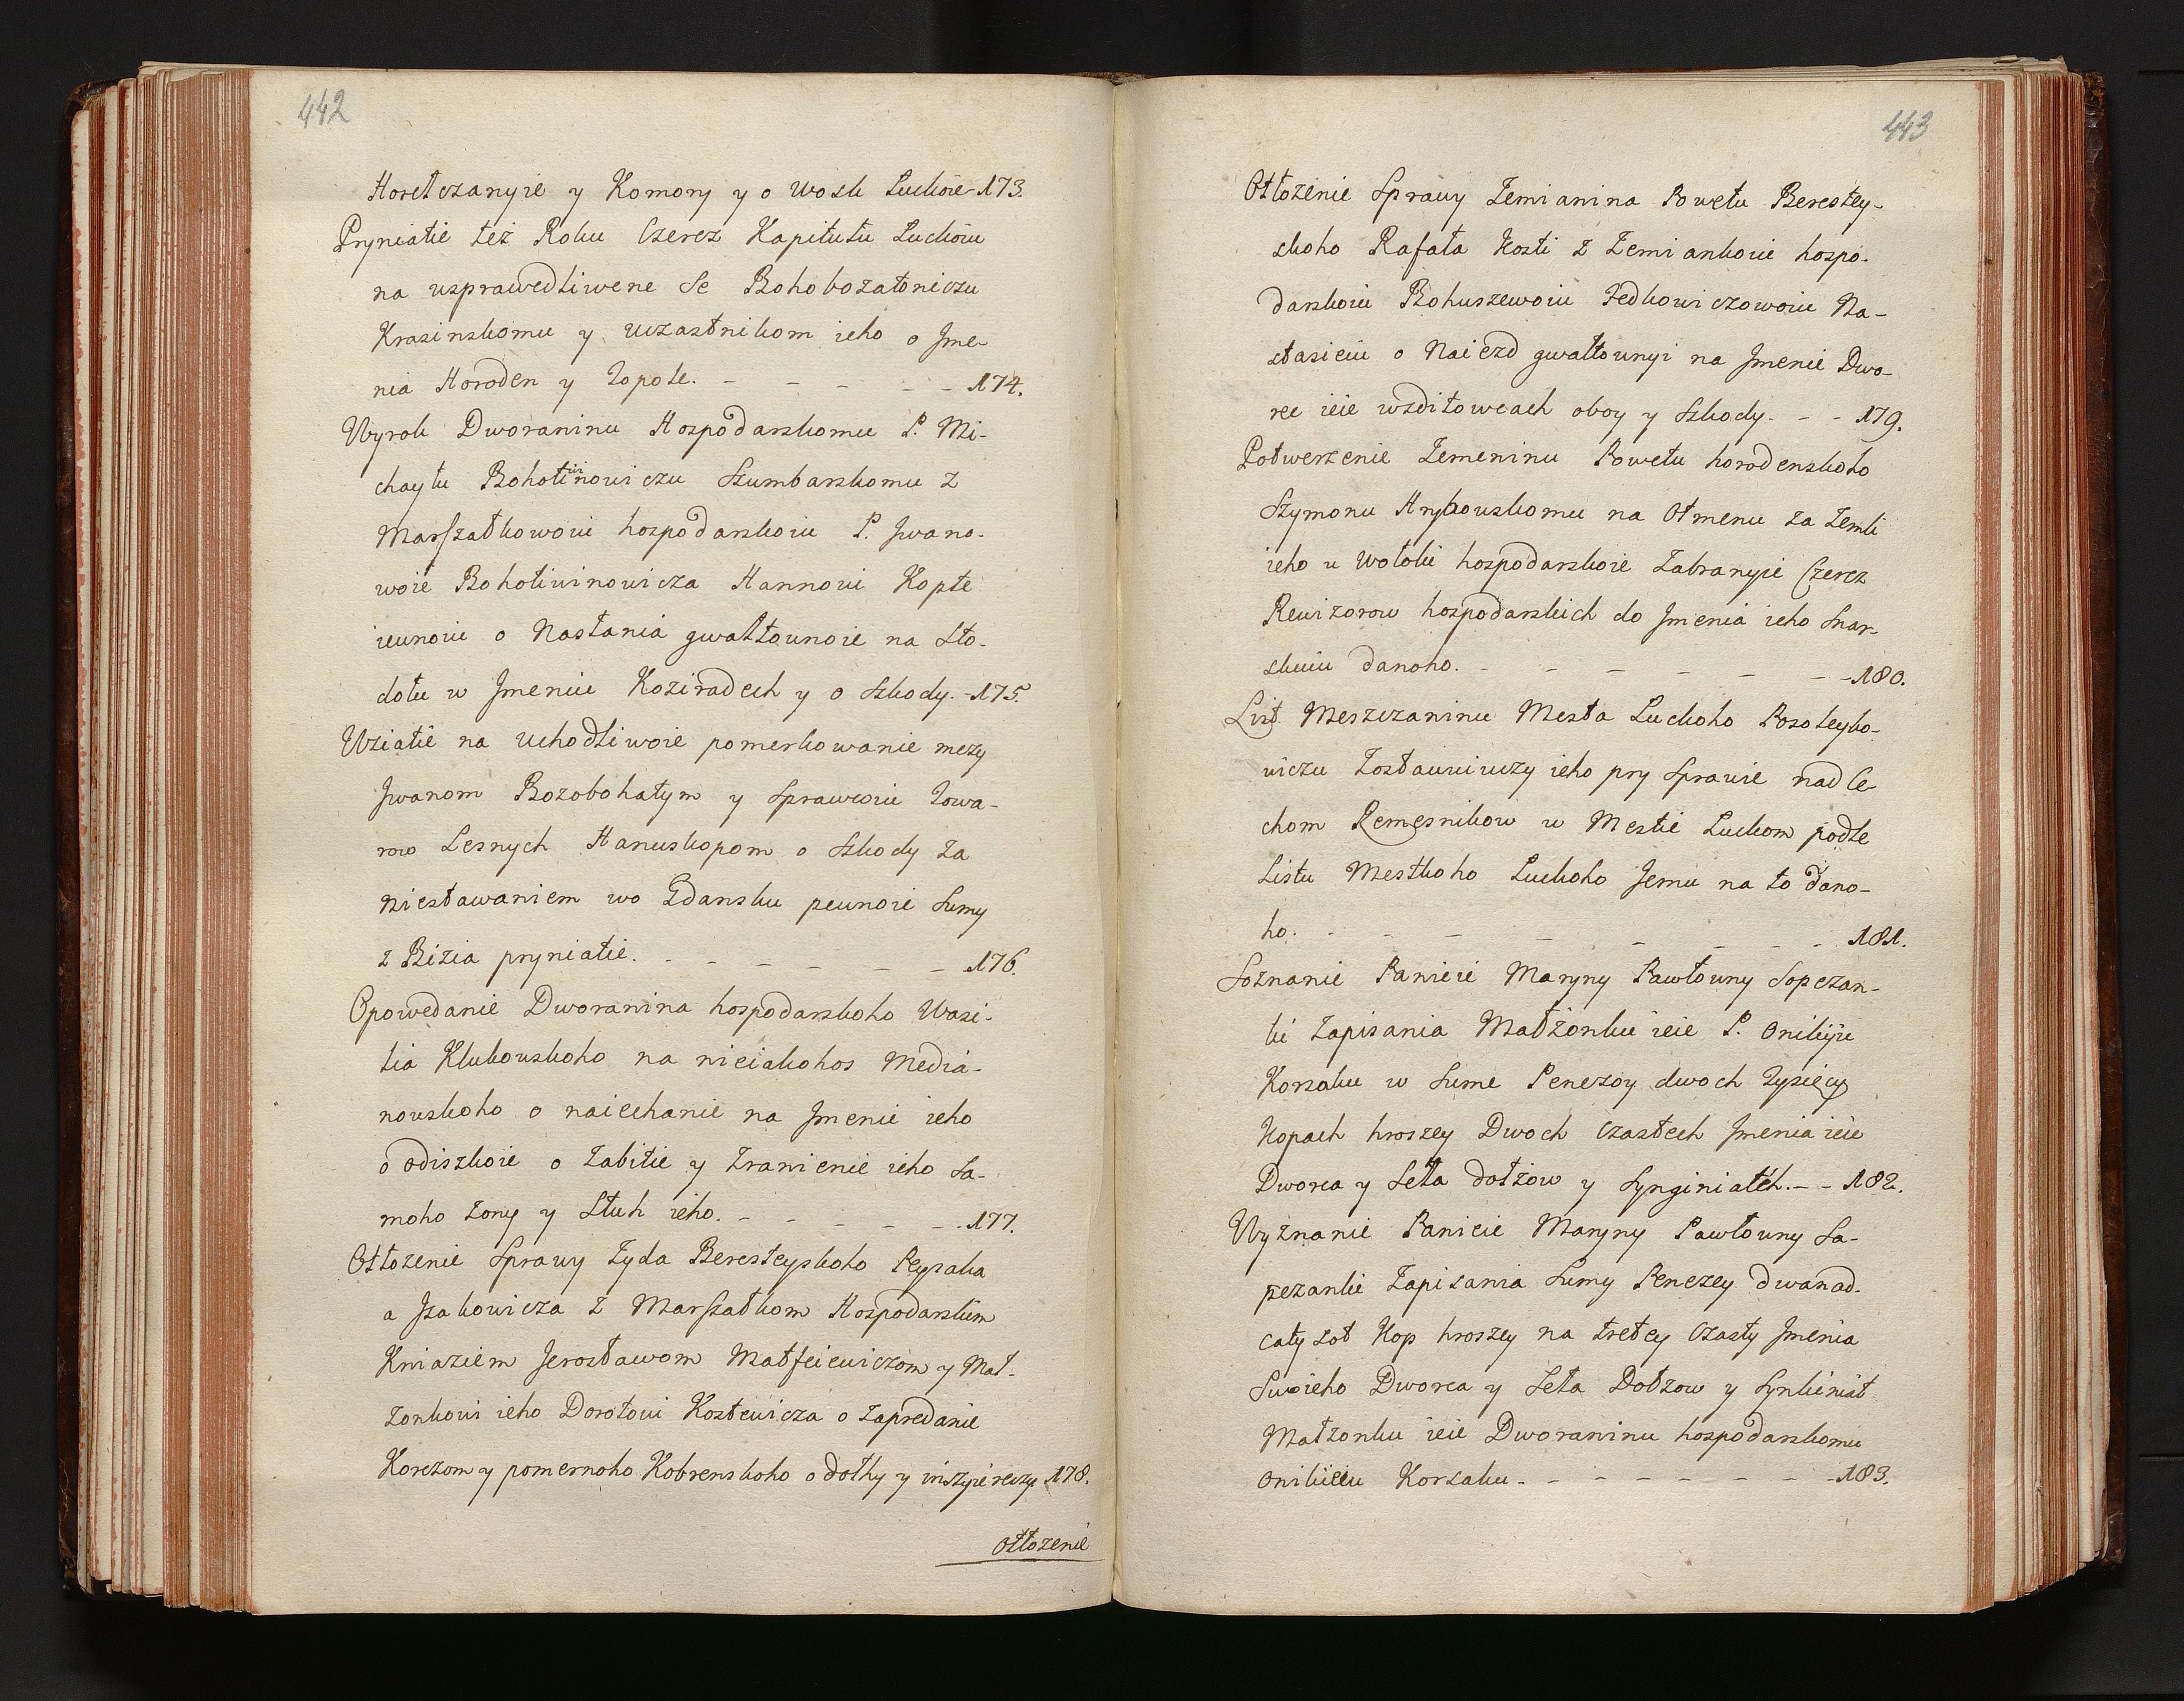 442
Horełczanyie y Komory y o Wosk Luckoie - 173.
Pryniatie też Roku Czerez Kapitułu Luckoiu
na usprawedliwene Se Bohobozatoniczu
Krasinskomu y uczastnikom ieho o Jme-
nia Horoden y Topole. - - - - - 174.
Wyrok Dworaninu Hospodarskomu P. Mi-
chayłu Boholiinowiczu Szumbarskomu z
Marszałkowoiu hospodarskoiu P. Jwano-
woie Bohotiwinowicza Hannoui Kopte
ieunoiu o Nasłania gwałtownoie na Sto-
dołu w Jmeniu Koziradech y o Szkody. - 175.
Uziatie na Uchodliwoie pomerkowanie mezy
Jwanom Bozobohatym y Sprawcoiu Towa-
row Lesnych Hanuskopom o Szkody za
niestawaniem wo Gdansku peunoie Sumy
z Bizia pryniatie. - - - - - - 176.
Opowedanie Dworanina hospodarskoho Wasi-
lia Klukouskoho na nieiakohos Media-
nouskoho o naiechanie na Jmenie ieho
o odiszkoie o Zabitie y Zranienie ieho Sa-
moho Zony y Sluh ieho. - - - - - 177.
Otłozenie Sprawy Zyda Beresteyskoho Peysaka
a Jzakowicza z Marszałkom Hospodarskim
Kniaziem Jerosławom Matfeiewiczom y Mał-
zonkoui ieho Dorotoui Kosteuicza o Zapredanie
Korczom y pomernoho Kobrenskoho o dołhy y inszyie reczy 178.
otłozenie
443
Otłozenie Sprawy Zemianina Powetu Berestey-
skoho Rafała Kosti z Zemiankoiu hospo-
darskoiu Bohuszewoiu Fedkowiczowoiu Na-
stasieiu o Naiezd gwałtounyi na Jmenie Dwo-
rec ieie wzdiłowcach oboy y Szkody. - - 179.
Potwerzenie Zemeninu Powetu horodenskoho
Szymonu Hrykouskomu na Otmenu za Zemli
ieho u Wołoki hospodarskoie Zabranyie Czerez
Rewizorow hospodarskich do Jmenia ieho Snar-
skuiu danoho. - - - - - - 180.
List Meszczaninu Mesta Luckoho Bosoleyko-
wiczu Zostauuiuczy ieho pry Sprawie nad Ce-
chom Remesnikow w Mestie Luckom podle
Listu Mestkoho Luckoho Jemu na to dano-
ho. - - - - - - - - 181.
Soznanie Panieie Maryny Pawłouny Sopezan-
ki Zapisania Małżonku ieie P. Onikiju
Korsaku w Sume Penezoy dwoch Tysięcy
Kopach hroszey Dwoch Czastech Jmenia ieie
Dworca y Seła Dołżow y Synginiatch. - - 182.
Wyznanie Panieie Maryny Pawłouny Sa-
pezanki Zapisania Sumy Penezey dwanad-
caty sot Kop hroszey na tretey Czasty Jmenia
Swoieho Dworca y Seła Dołzow y Synkiniat
Małzonku ieie Dworaninu hospodarskomu
Onikieiu Korsaku. - - - - - - - 183.